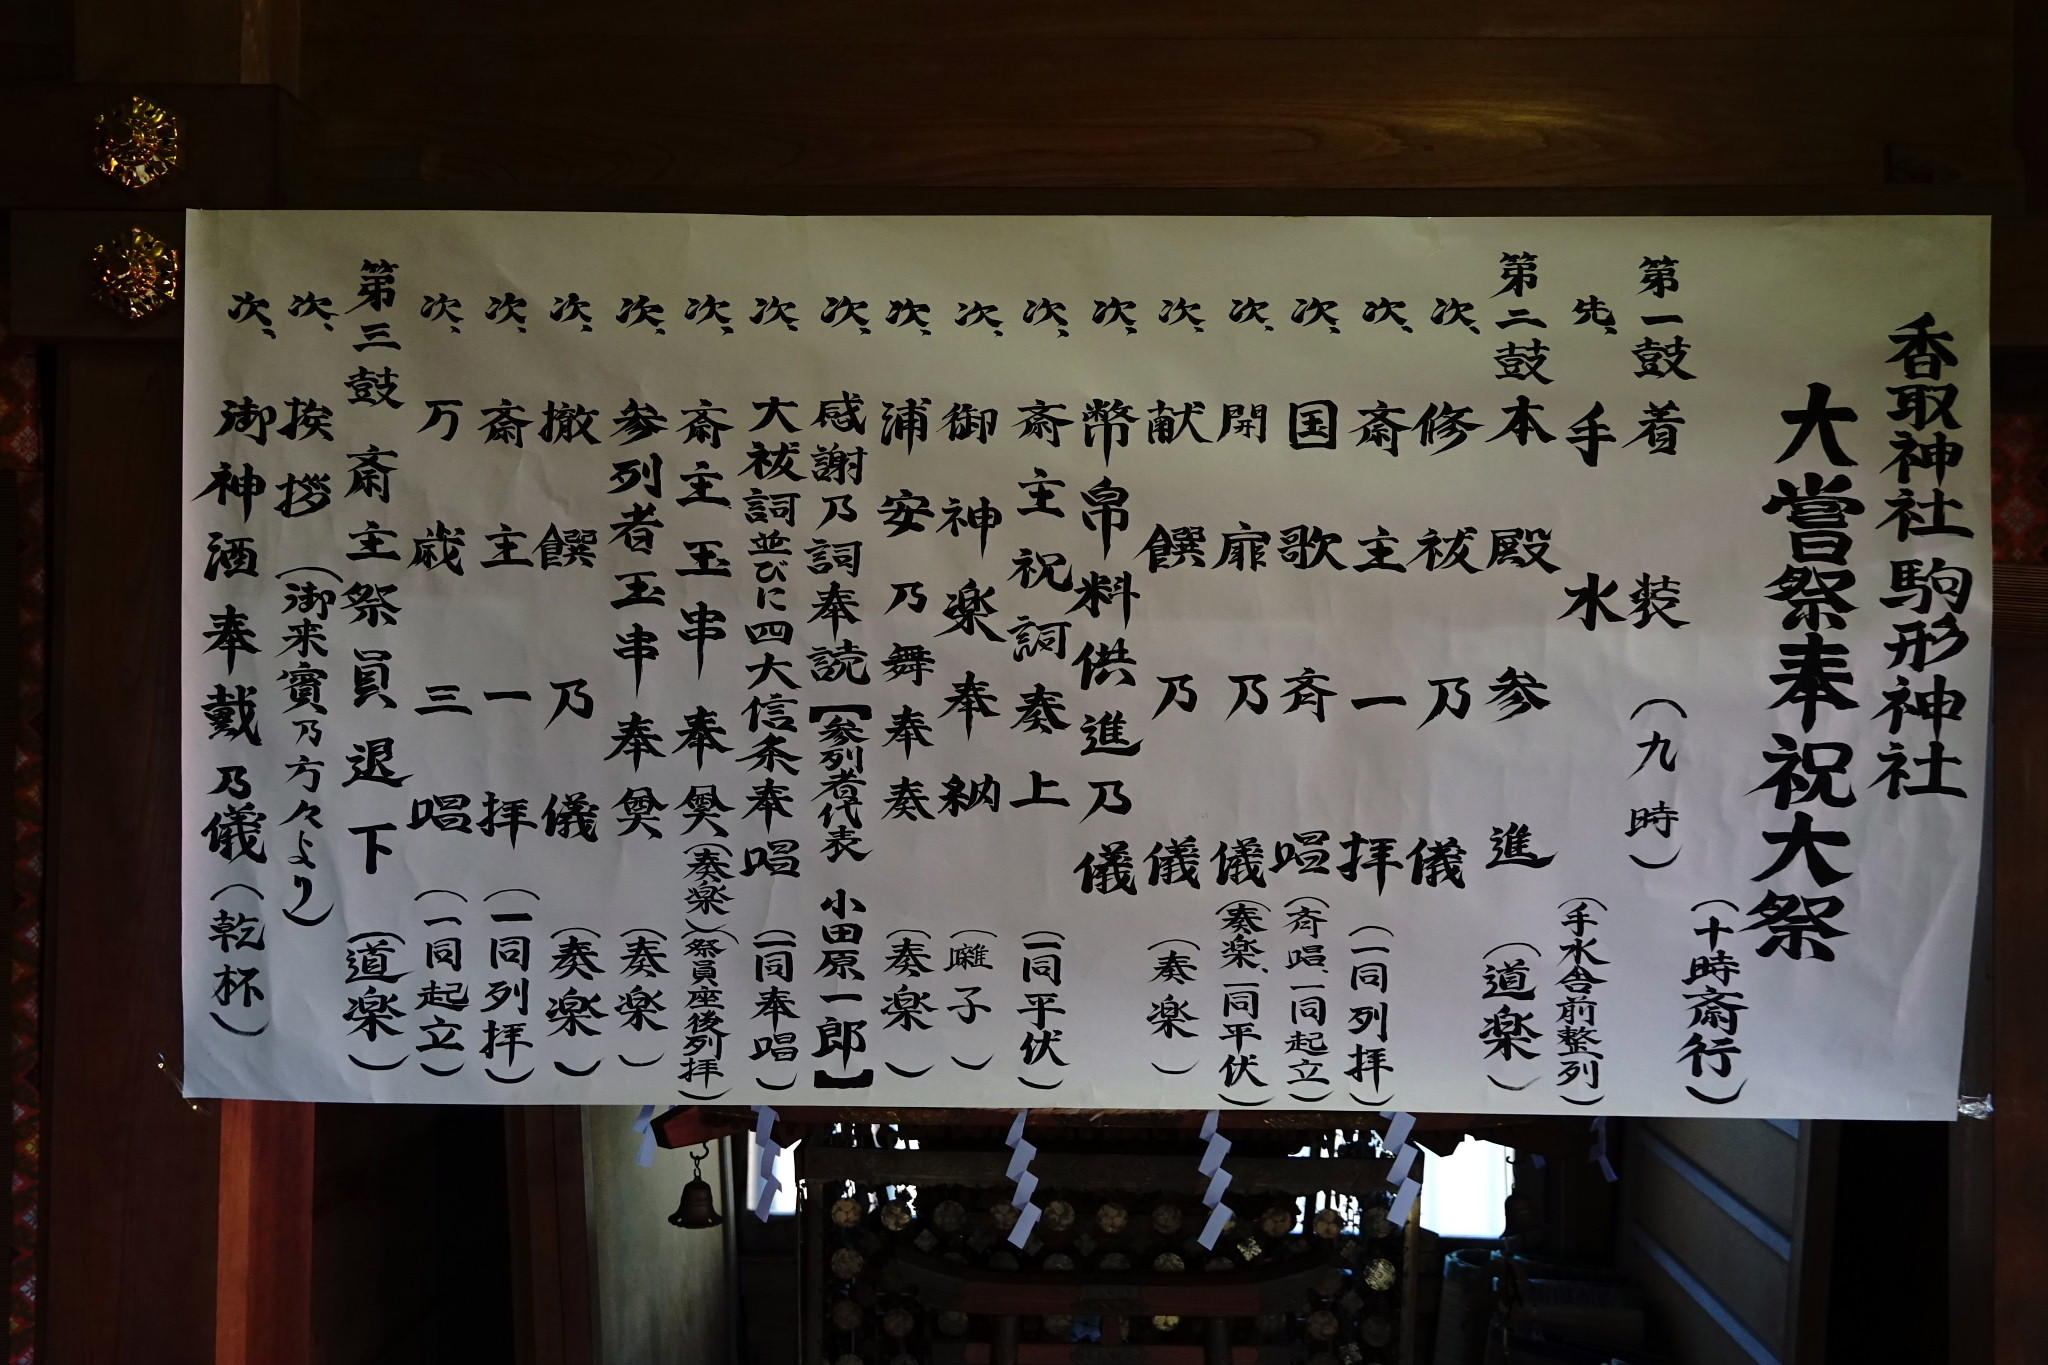 香取神社 駒形神社
大嘗祭奉祝大祭
(十時斎行)
第一鼓 着装 (九時)
先、 手水 (手水舎前整列)
第二鼓 本殿参進 (道楽)
次、 修祓乃儀
次、 斎主一拝 (一同列拝)
次、 国歌斉唱 (斉唱、一同起立)
次、 開扉乃儀 (奏楽、一同平伏)
次、 献饌乃儀 (奏楽)
次、 幣帛料供進乃儀
次、 斎主祝詞奏上 (一同平伏)
次、 御神楽奉納 (囃子)
次、 浦安乃舞奉奏 (奏楽)
次、 感謝乃詞奉読【参列者代表 小田原一郎】
次、 大祓詞並びに四大信条奉唱 (一同奉唱)
次、 斎主玉串奉奠(奏楽)(祭員座後列拝)
次、 参列者玉串奉奠 (奏楽)
次、 撤饌乃儀 (奏楽)
次、 斎主一拝 (一同列拝)
次、 万歳三唱 (一同起立)
第三鼓 斎主祭員退下 (道楽)
次、 挨拶 (御来賓乃方々より)
次、 御神酒奉戴乃儀 (乾杯)